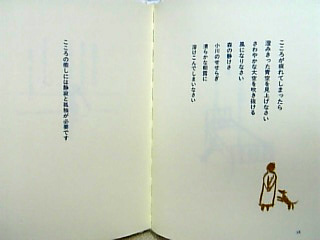 こころが疲れてしまったら
澄みきった青空を見上げなさい
さわやかな大空を吹き抜ける
風になりなさい
森の静けさ
小川のせせらぎ
清らかな朝霧に
溶けこんでしまいなさい
こころの癒しには静寂と孤独が必要です